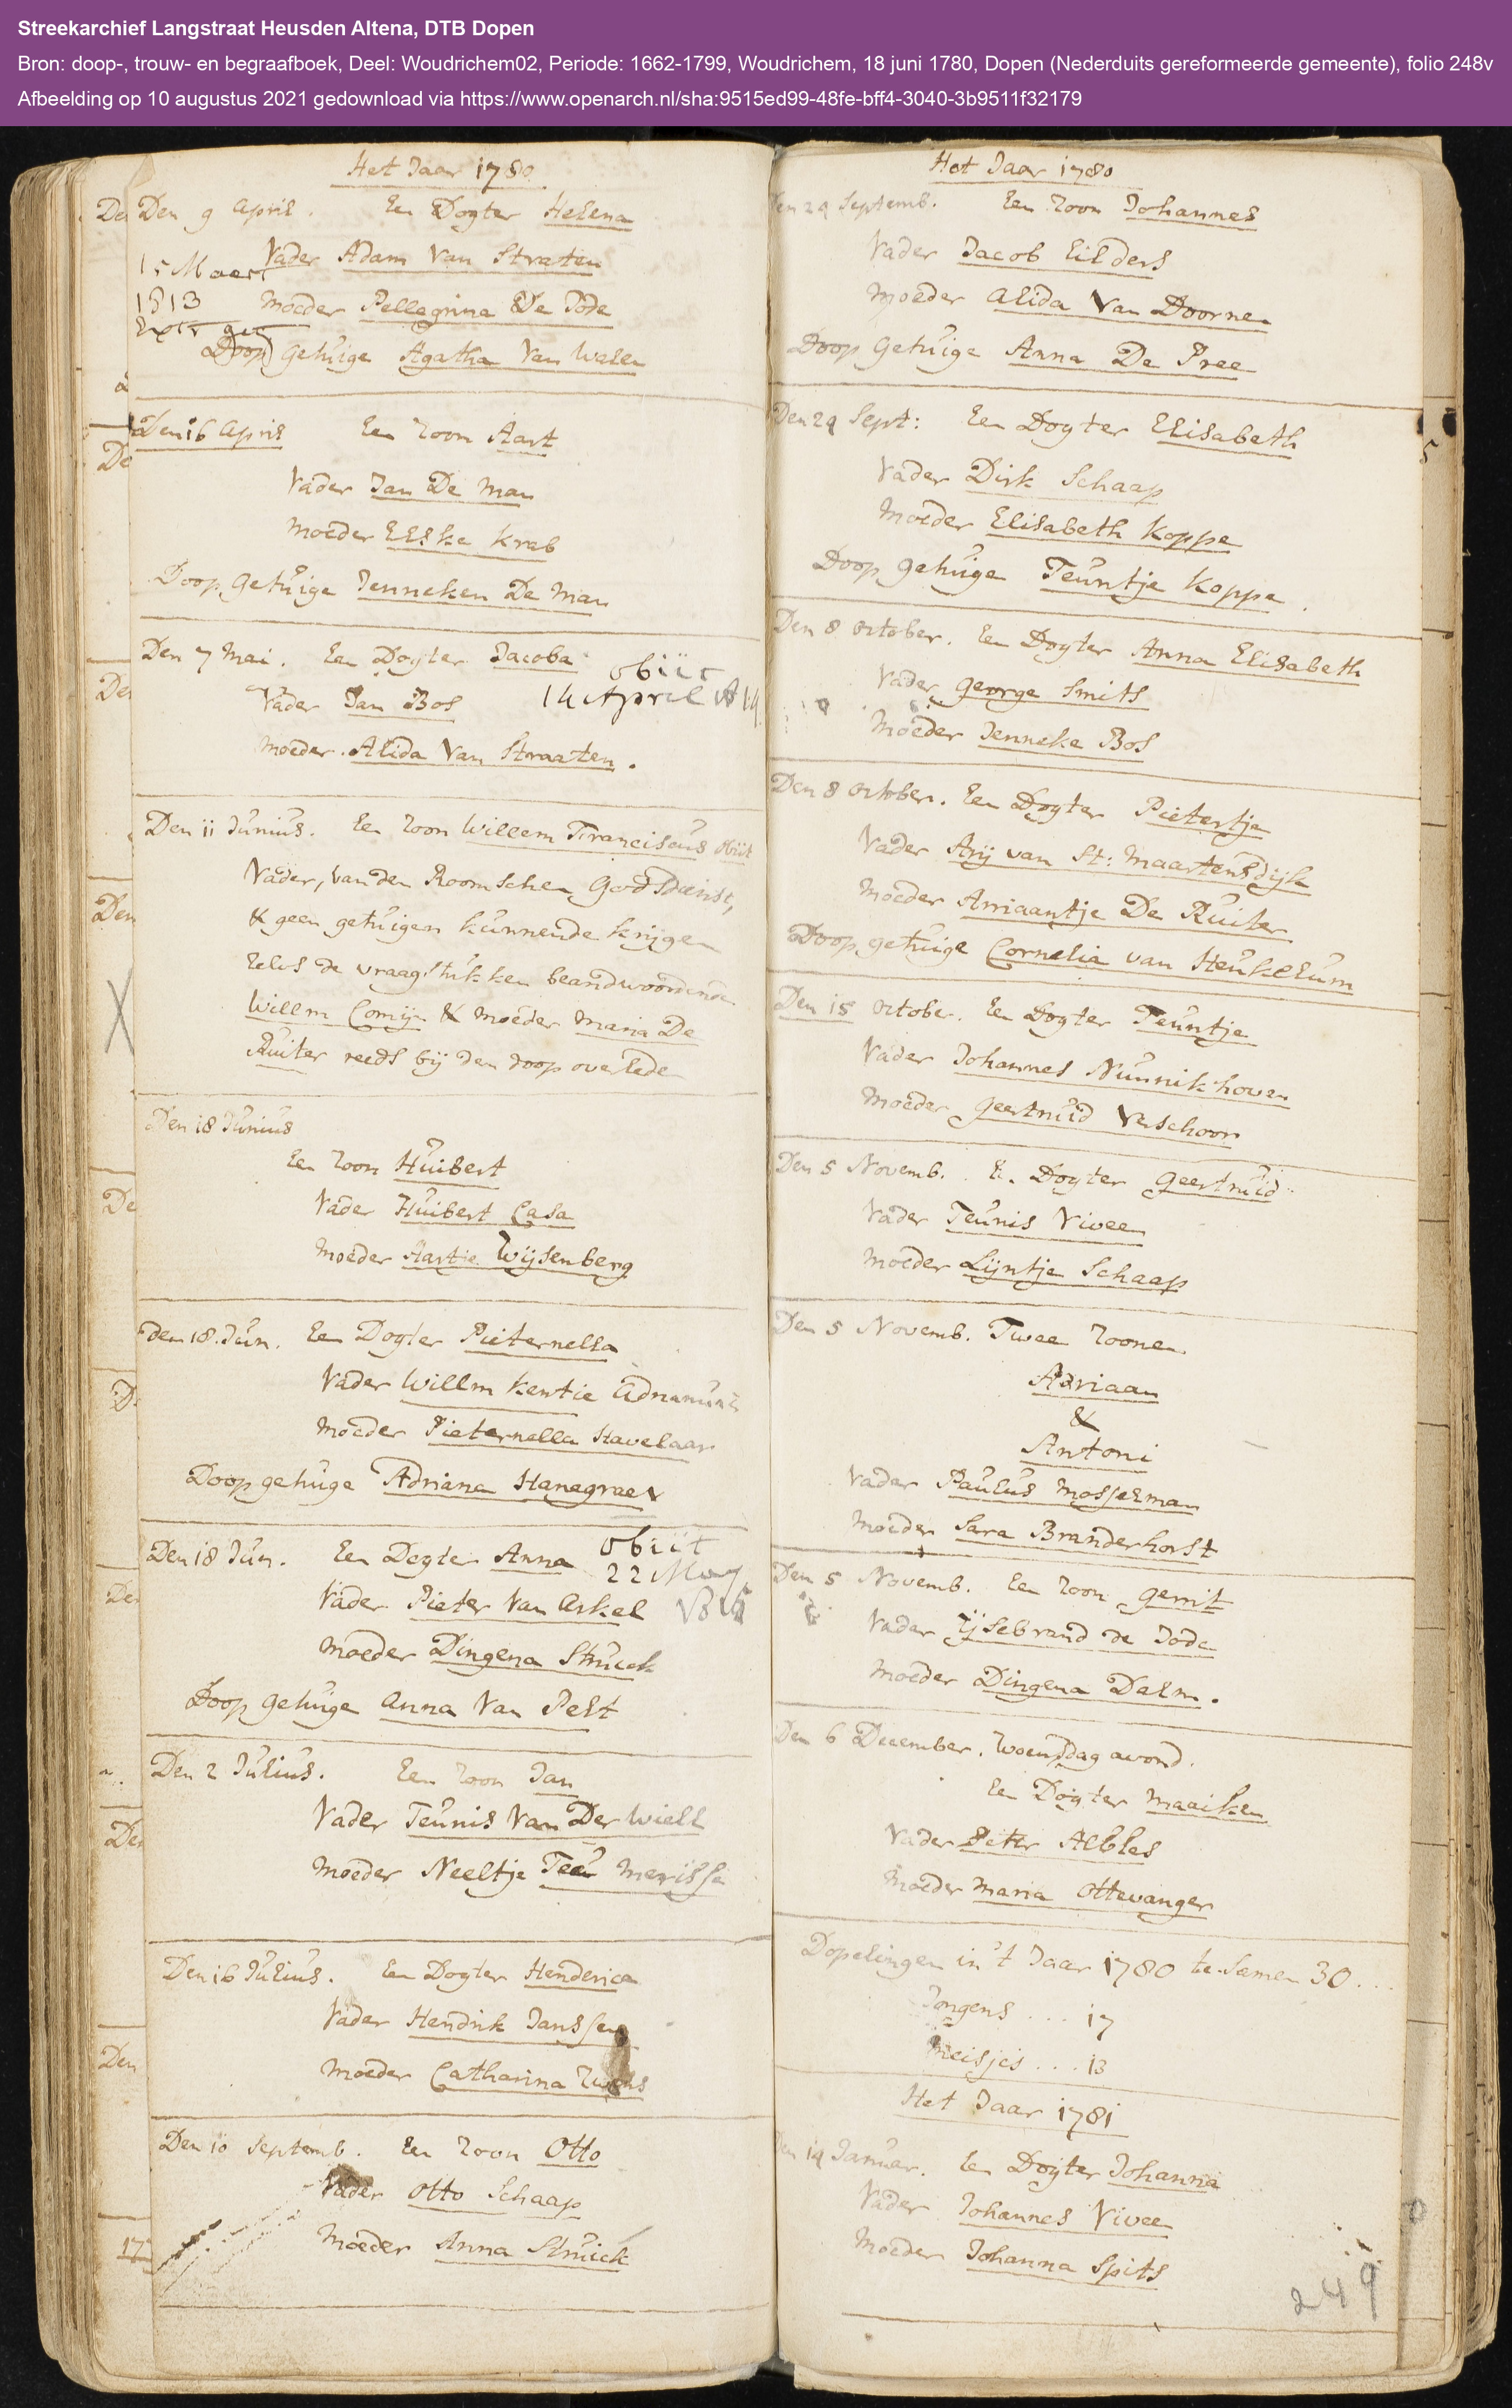 Streekarchief Langstraat Heusden Altena, DTB Dopen
Bron: doop-, trouw- en begraafboek, Deel: Woudrichem02, Periode: 1662-1799, Woudrichem, 18 juni 1780, Dopen (Nederduits gereformeerde gemeente), folio 248v
Afbeelding op 10 augustus 2021 gedownload via https://www.openarch.nl/sha:9515ed99-48fe-bff4-3040-3b9511f32179
Het Jaar 1780
Den 9 April. Een Dogter Helena
Vader Adam Van Straten
15 Maert
1813 Moeder Pellegrina De Jode
Extr
Doop Getuige Agatha Van Walen
Den 16 April Een Zoon Aart
Vader Jan De Man
Moeder Elske Krab
Doop Getuige Jenneken De Man
Den 7 Mai. Een Dogter Jacoba obiit
Vader Jan Bos 14 April
Moeder. Alida Van Straaten.
Den 11 Junius. Een Zoon Willem Franciscus obiit
Vader, van den Roomschen Godsdienst,
& geen getuigen kunnende krijgen
zelvs de vraagstukken beandwoordende
Willm Comijn & Moeder Maria De
Ruiter reeds bij den doop overlede
Den 18 Junius
Een Zoon Huibert
Vader Huibert Casa
Moeder Aartje Wijsenberg
den 18. Jun. Een Dogter Pieternella
Vader Willm Kentie
Moeder Pieternella Havelaar
Doop getuige Adriana Hanegraev
Den 18 Jun. Een Dogter Anna obiit
22 May
Vader Pieter Van Arkel
Moeder Dingena Struick
Doop Getuige Anna Van Pelt
Den 2 Julius. Een Zoon Jan
Vader Teunis Van Der Wiell
Moeder Neeltje Teeu Merisse
Den 16 Julius. Een Dogter Henderica
Vader Hendrik Janssens
Moeder Catharina
Den 10 Septemb. Een Zoon Otto
Vader Otto Schaap
Moeder Anna Struick
Het Jaar 1780
Den 24 Septemb. Een Zoon Johannes
Vader Jacob Eilders
Moeder Alida Van Doornen
Doop Getuige Anna De Pree
Den 24 Sept: Een Dogter Elisabeth
Vader Dirk Schaap
Moeder Elisabeth Koppe
Doop getuige Teuntje Koppe.
Den 8 October. Een Dogter Anna Elisabeth
Vader George Smits
Moeder Jenneke Bos
Den 8 October. Een Dogter Pietertje
Vader Arij van St: Maartensdijk
Moeder Arriaantje De Ruiter
Doop getuige Cornelia van Heukelum
Den 15 October. Een Dogter Teuntje
Vader Johannes Nunnikhoven
Moeder Geertruid Verschoor
Den 5 Novemb. E. Dogter Geertruid
Vader Teunis Vivee
Moeder Lijntje Schaap
Den 5 Novemb. Twee Zoonen
Adriaan
&
Antoni
Vader Paulus Mosselman
Moeder Sara Branderhorst
Den 5 Novemb. Een Zoon Gerrit
Vader IJsebrand de Jode
Moeder Dingena Dalm.
Den 6 December. Woensdag avond.
Een Dogter Maaiken
Vader Peter Albles
Moeder Maria Ottevanger
Dopelingen in 't Jaar 1780 te Samen 30...
Jongens ... 17
Meisjes ... 13
Het Jaar 1781
Den 14 Januar. Een Dogter Johanna
Vader Johannes Vivee
Moeder Johanna Spits
249